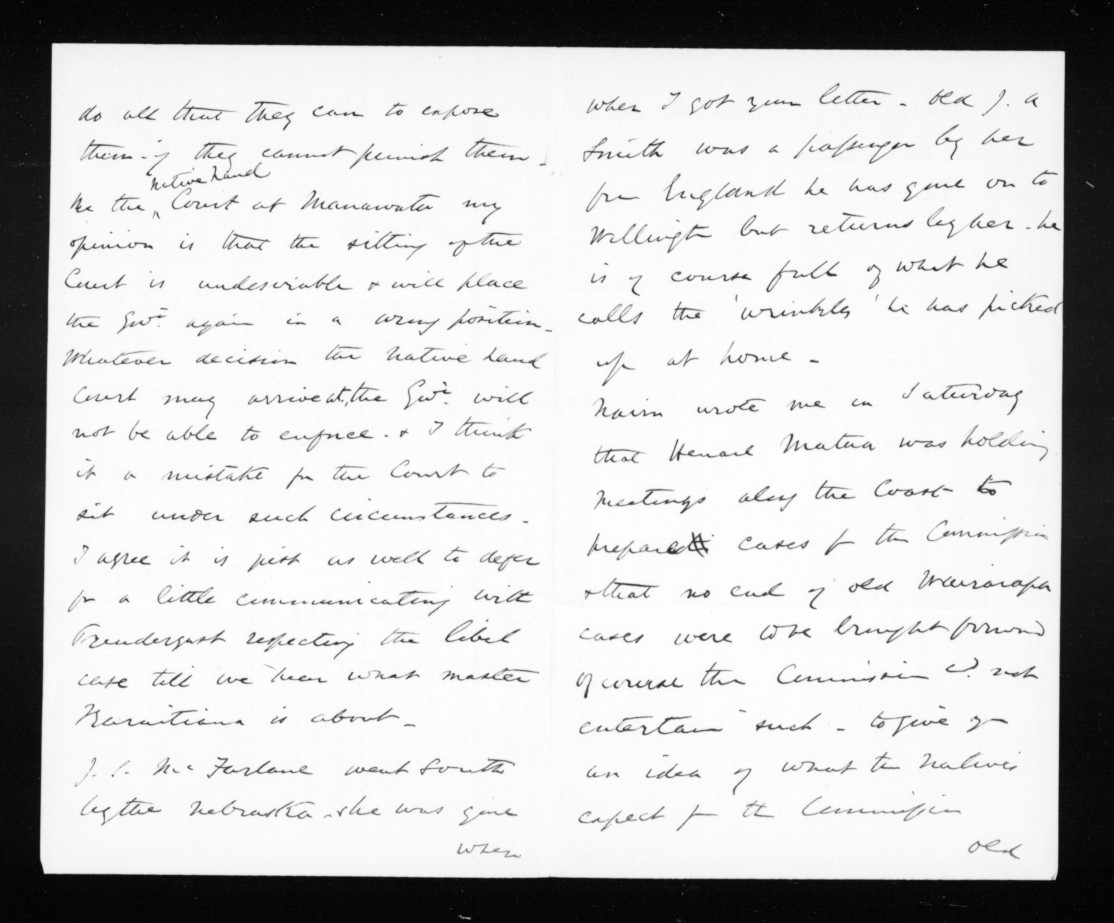 do all that they can to expose
them - if they cannot punish them -
Re the Native Land Court at Manawatu my
opinion is that the sitting of the
Court is undesirable & will place
the Govt. again in a wrong position -
Whatever decision the Native Land
Court may arrive at, the Govt. will
not be able to enforce - & I think
it a mistake for the Court to
sit under such circumstances -
I agree it is just as well to defer
for a little communicating with
Prendergast respecting the libel
case till we hear what master
Karaitiana is about -
J. S. McFarlane went South
by the Nebraska - she was gone
when
when I got your letter - Old J. A
Smith was a passenger by her
from England he has gone on to
Wellington but returns by her - he
is of course full of what he
calls the 'wrinkles' he has picked
up at home -
Nairn wrote me on Saturday
that Henare Matua was holding
meetings along the Coast to
prepare cases for the Commission
& that no end of old Wairarapa
cases were to be brought forward
of course the Commission wd. not
entertain such - to give you
an idea of what the Natives
expect from the Commission
old